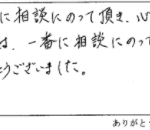 に相談にのって頂き、心
は、一番に相談にのって
とうございました。
ありがと